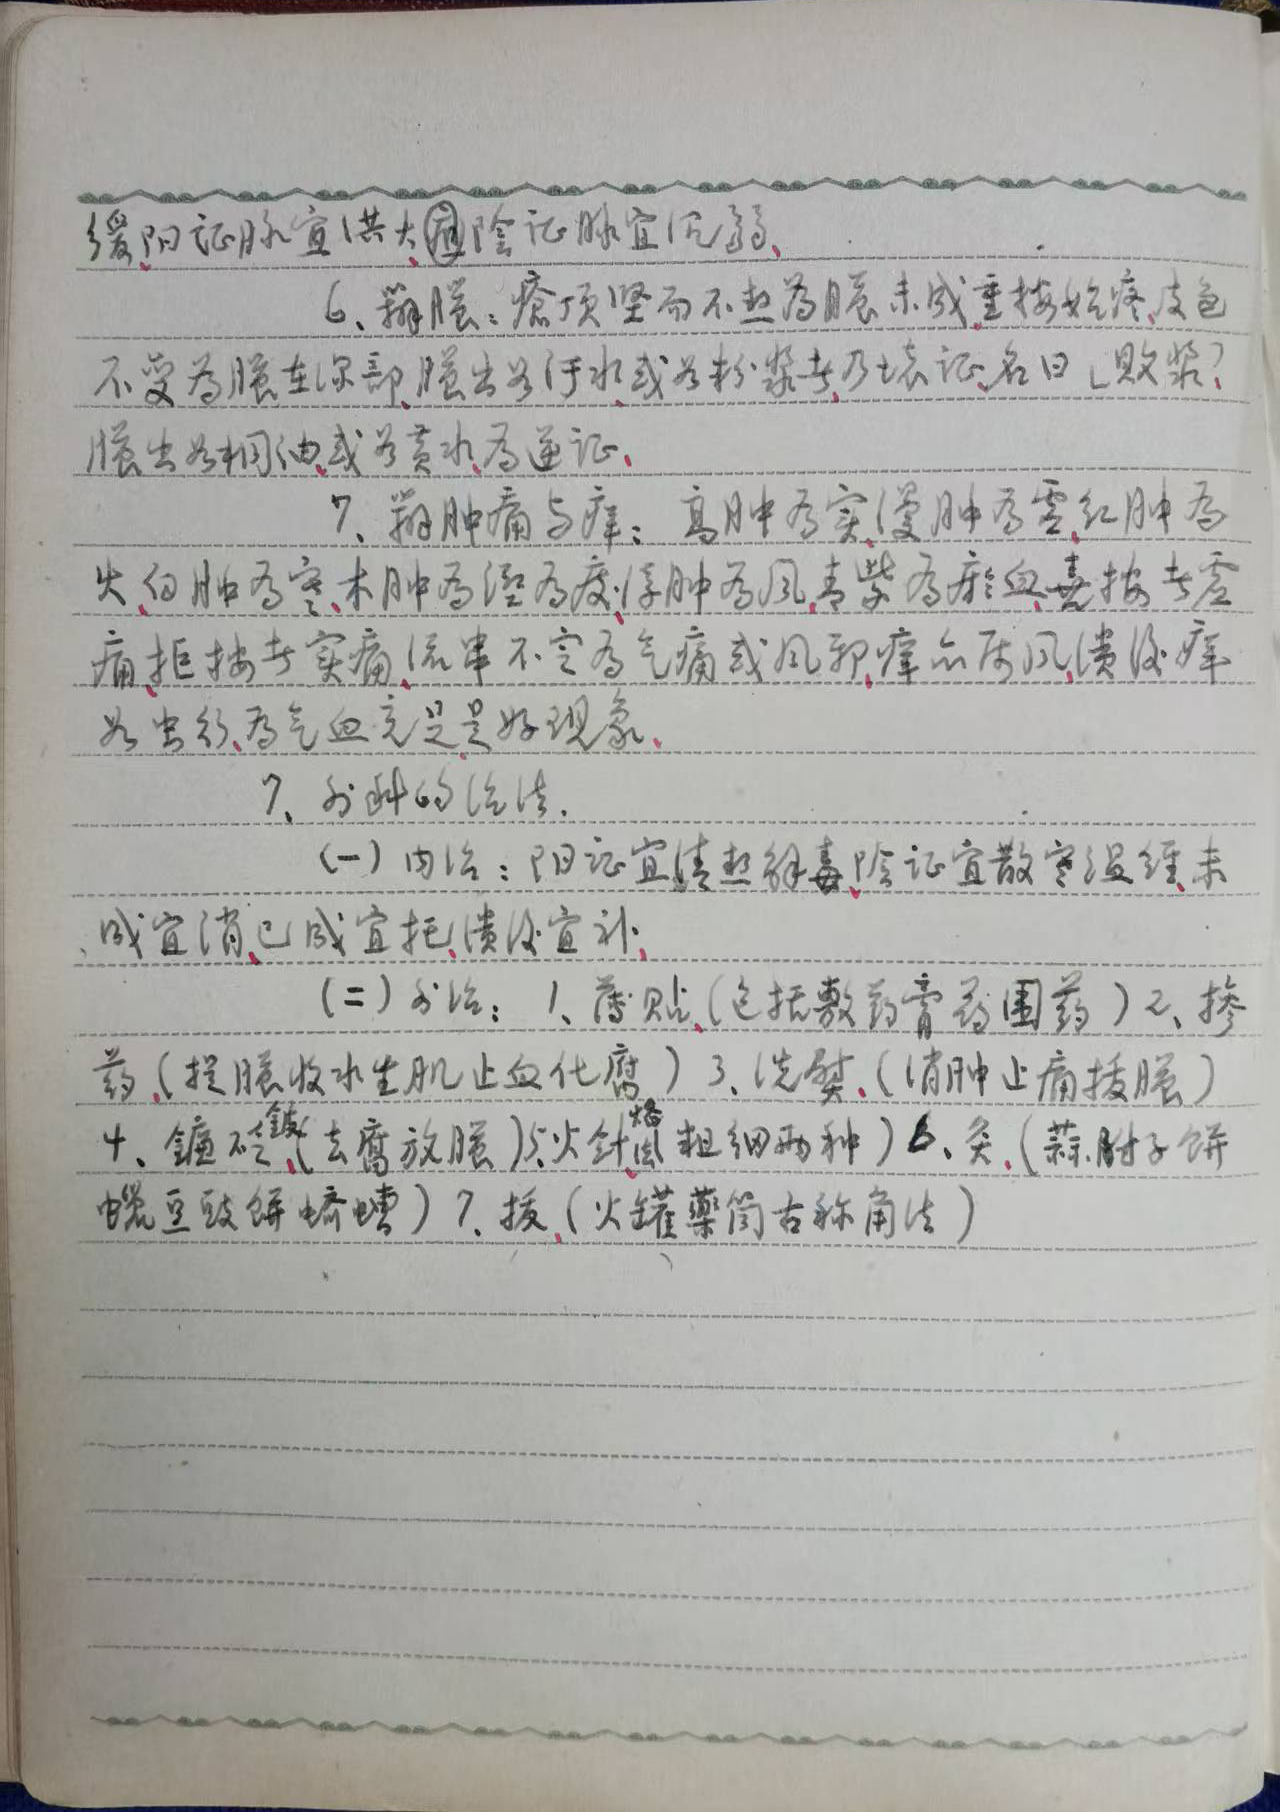 缓、阳证脉宜洪大、陰证脉宜沉弱、
6、辨膿：瘡顶坚而不热為膿未成、重按始疼、皮色
不变為膿在深部、膿出如汙水、或如粉漿者、乃坏证、名曰「败漿」
膿出如桐油、或如黄水、為逆证、
7、辨肿痛与痒：高肿為实、漫肿為虚、红肿為
火、白肿為寒、木肿為湿為痰、浮肿為风、青紫為瘀血、喜按者虚
痛、拒按者实痛、流串不定為气痛或风邪、痒亦属风、溃後痒
如虫行、為气血充足是好现象、
7、外科的治法.
(一) 内治：阳证宜清热解毒、陰证宜散寒温经、未
成宜消、已成宜托、溃後宜补、
(二) 外治：1、薄贴、(包括敷药膏药围药) 2、掺
药、(提膿收水生肌止血化腐) 3、洗熨、(消肿止痛拔膿)
4、鐮砭鈹、(去腐放膿) 5、火針烙、(粗细两种) 6、灸、(蒜附子饼
蠟豆豉餅蛴螬) 7、拔、(火罐藥筒古称角法)